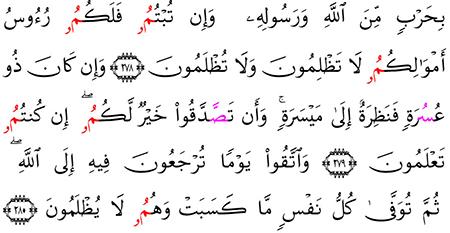 بِحَرْبٖ مِّنَ ٱللَّهِ وَرَسُولِهِۦ وَإِن تُبْتُمُۥ فَلَكُمُۥ رُءُوسُ
أَمْوَٰلِكُمُۥ لَا تَظْلِمُونَ وَلَا تُظْلَمُونَ ٢٧٨ وَإِن كَانَ ذُو
عُسُرَةٖ فَنَظِرَةٌ إِلَىٰ مَيْسَرَةٖۚ وَأَن تَصَّدَّقُوا۟ خَيْرٞ لَّكُمُۥۖ إِن كُنتُمُۥ
تَعْلَمُونَ ٢٧٩ وَٱتَّقُوا۟ يَوْمٗا تُرْجَعُونَ فِيهِ إِلَى ٱللَّهِۖ
ثُمَّ تُوَفَّىٰ كُلُّ نَفْسٖ مَّا كَسَبَتْ وَهُمُۥ لَا يُظْلَمُونَ ٢٨٠